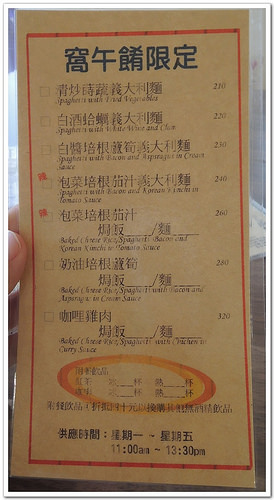 窩午餚限定
青炒蒔蔬義大利麵 210
Spaghetti with Fried Vegetables
白酒蛤蠣義大利麵 220
Spaghetti with White Wine and Clam
白醬培根蘆筍義大利麵 230
Spaghetti with Bacon and Asparagus in Cream
Sauce
辣 泡菜培根茄汁義大利麵 240
Spaghetti with Bacon and Korean Kimchi in
Tomato Sauce
辣 泡菜培根茄汁 260
焗飯____/麵____
Baked Cheese Rice/Spaghetti Bacon and
Korean Kimchi in Tomato Sauce
奶油培根蘆筍 280
焗飯____/麵____
Baked Cheese Rice/Spaghetti with Bacon and
Asparagus in Cream Sauce
咖哩雞肉 320
焗飯____/麵____
Baked Cheese Rice/Spaghetti with Chicken in
Curry Sauce
飲品
紅茶 冰___杯 熱___杯
冰___杯 熱___杯
附餐飲品可折抵四十元以換購其他無酒精飲品
供應時間：星期一 ~ 星期五
11:00am ~ 13:30pm